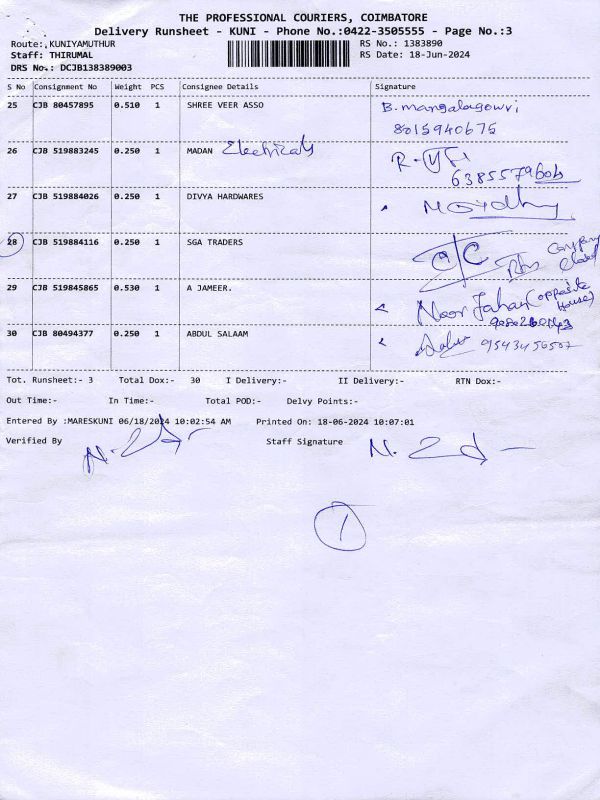 THE PROFESSIONAL COURIERS, COIMBATORE
Delivery Runsheet - KUNI - Phone No.:0422-3505555 - Page No.:3
Route:,KUNIYAMUTHUR RS No.: 1383890
Staff: THIRUMAL RS Date: 18-Jun-2024
DRS No.: DCJB138389003
S No Consignment No Weight PCS Consignee Details Signature
25 CJB 80457895 0.510 1 SHREE VEER ASSO B. mangalagowri
8015940675
26 CJB 519883245 0.250 1 MADAN Electricals
6385579606
27 CJB 519884026 0.250 1 DIVYA HARDWARES
28 CJB 519884116 0.250 1 SGA TRADERS Company
closed
29 CJB 519845865 0.530 1 A JAMEER. Noor Jahan (opposite
House)
30 CJB 80494377 0.250 1 ABDUL SALAAM
Tot. Runsheet:- 3 Total Dox:- 30 I Delivery:- II Delivery:- RTN Dox:-
Out Time:- In Time:- Total POD:- Delvy Points:-
Entered By :MARESKUNI 06/18/2024 10:02:54 AM Printed On: 18-06-2024 10:07:01
Verified By Staff Signature
1